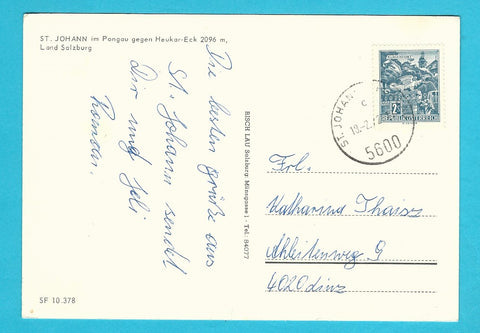 ST. JOHANN im Pongau gegen Heukar-Eck 2096 m,
Land Salzburg
Die besten Grüße aus
St. Johann sendet
Dir und
Roman.
RISCH LAU Salzburg, Münzgasse 1 - Tel. 84077
ST. JOHANN
5600
2S
REPUBLIK ÖSTERREICH
Frl.
Katharina Thaisz
9
4020 Linz
SF 10.378